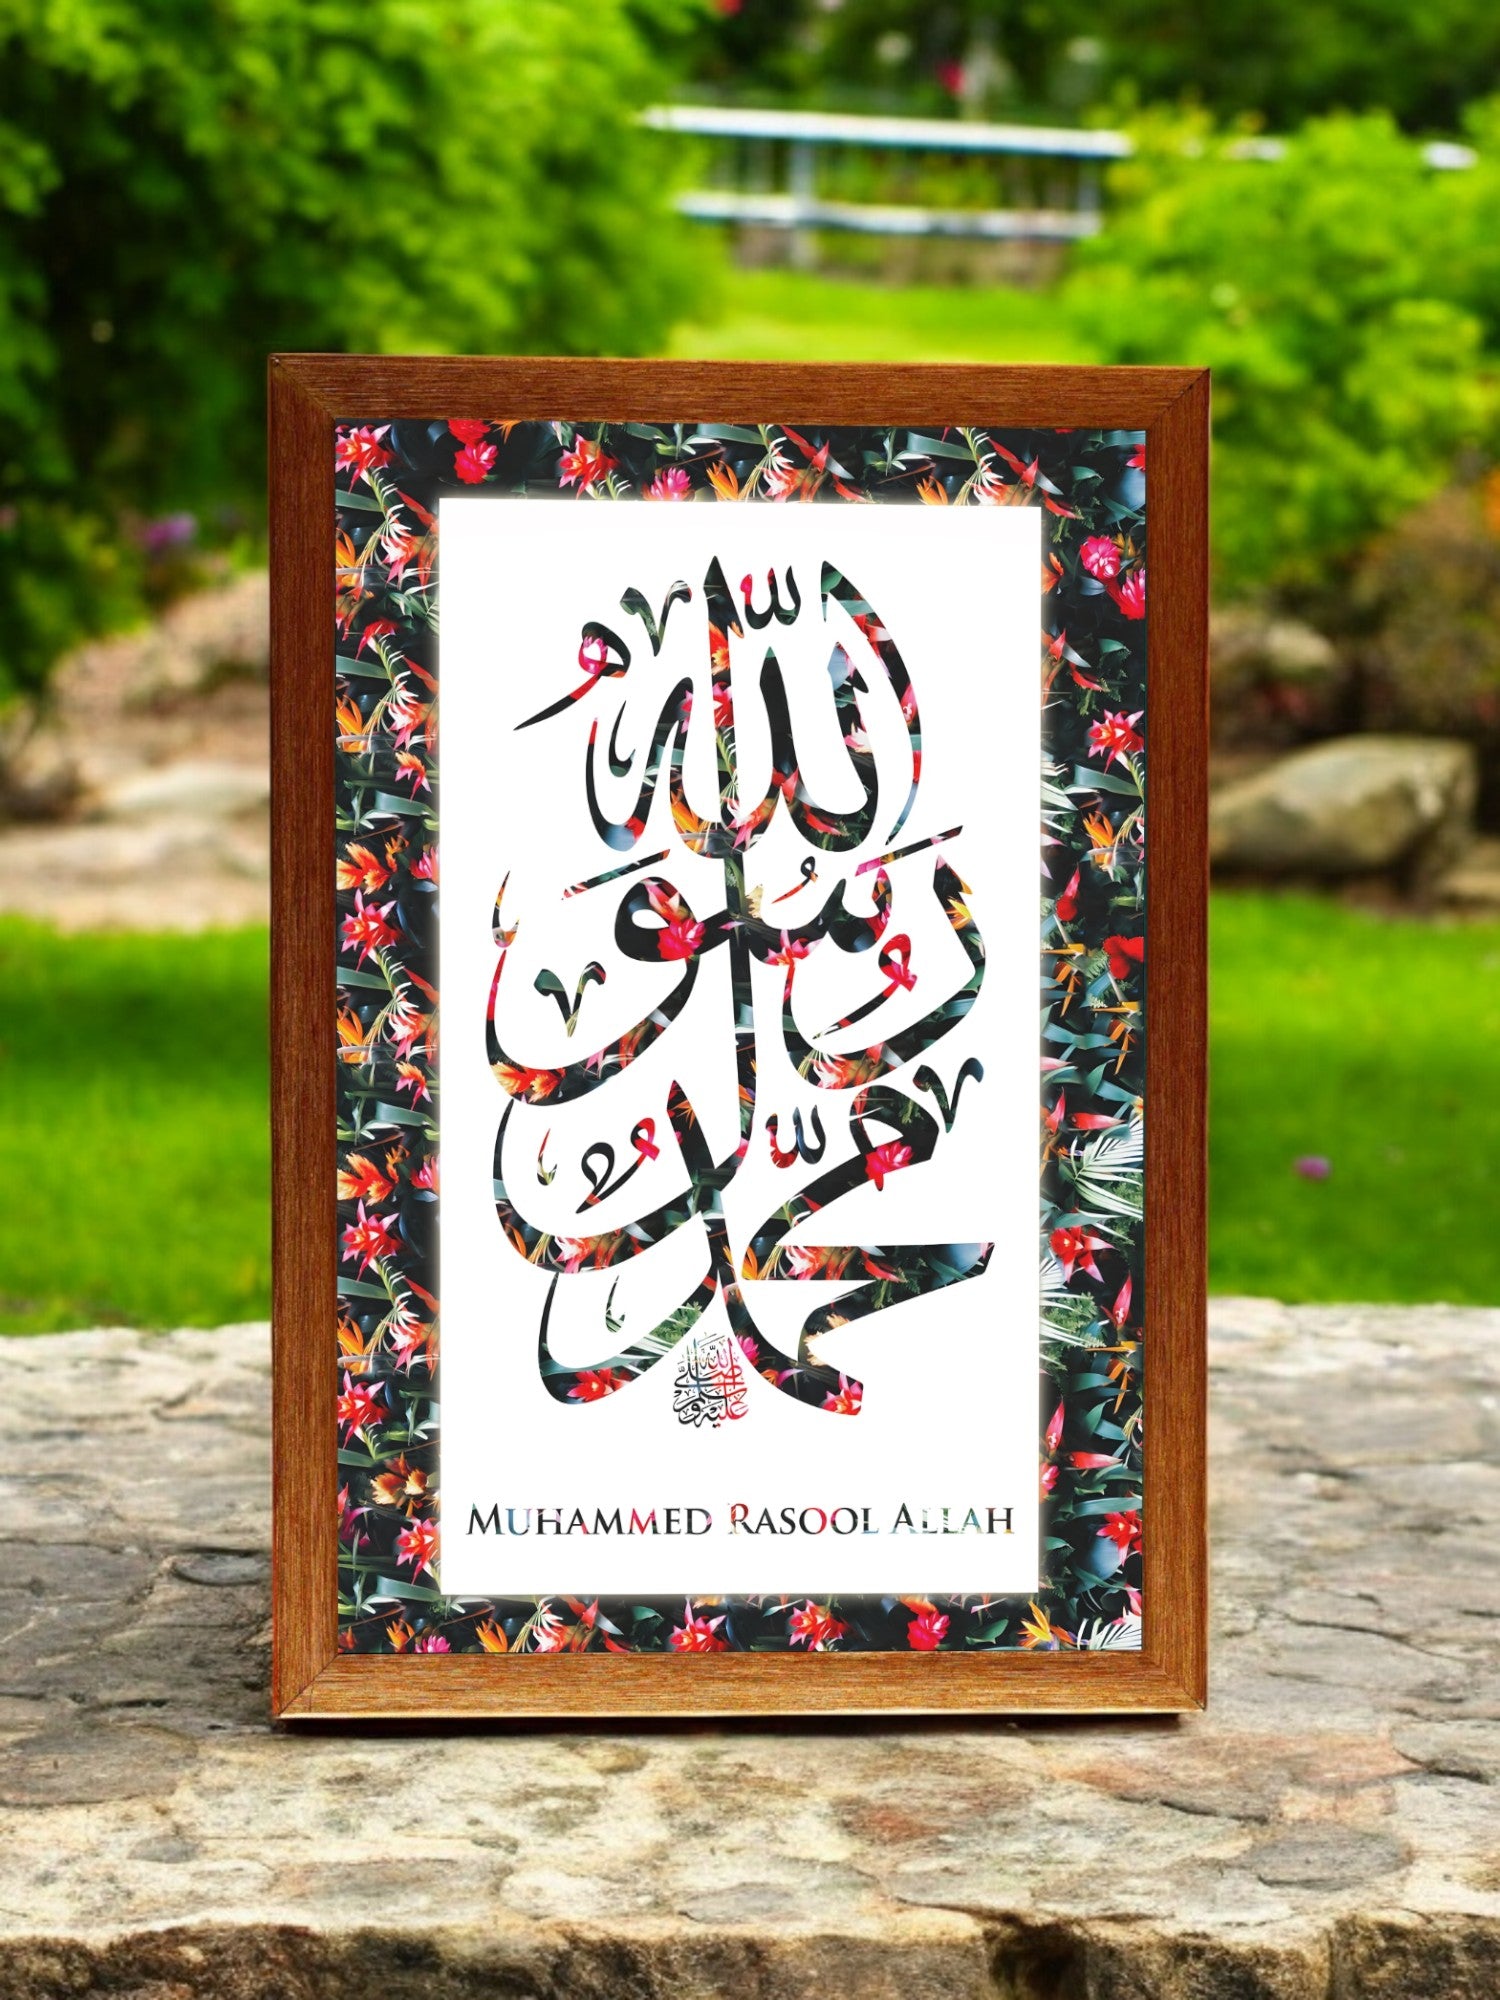 محمد
رسول
الله
صلى الله عليه وسلم
MUHAMMED RASOOL ALLAH